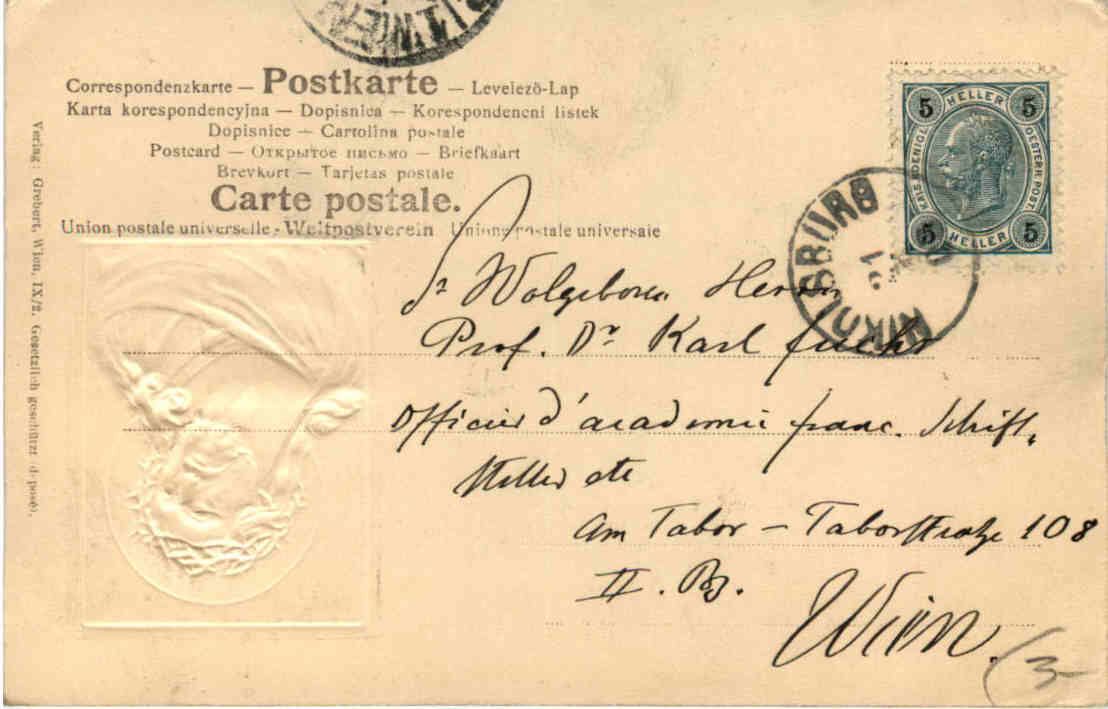 Correspondenzkarte — Postkarte — Levelezö-Lap
Karta korespondencyjna — Dopisnica — Korespondencni listek
Dopisnice — Cartolina postale
Postcard — Открытое письмо — Briefkaart
Brevkort — Tarjetas postale
Carte postale.
Union postale universelle - Weltpostverein Unione postale universale
Verlag: Grebert, Wien, IX/2. Gesetzlich geschützt (deposé).
5 HELLER 5
KAIS. KOENIGL. OESTERR. POST
5 HELLER 5
NIKOLSBURG
21
Sr Wolgeboren Herrn
Prof. Dr Karl Fuchs
Officier d'academie franc. Schrift,
steller etc
am Tabor — Taborstraße 108
II. Bz.
Wien.
(3-